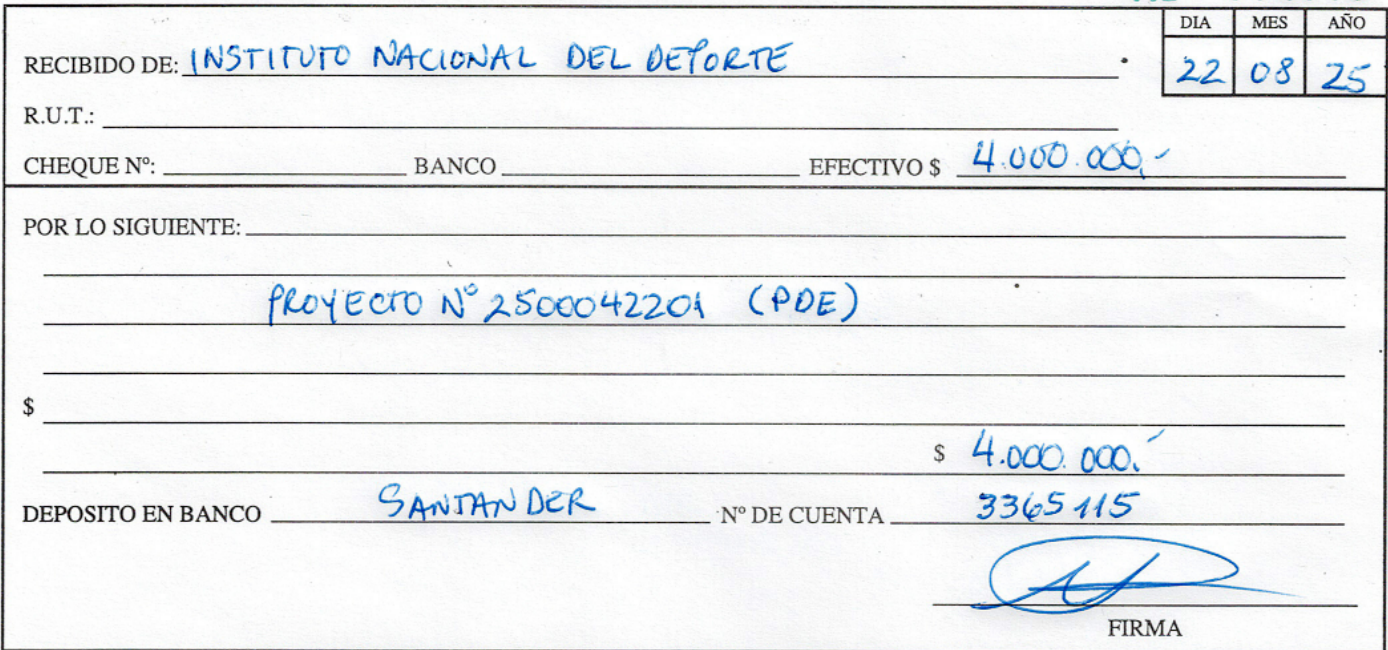 DIA MES AÑO
RECIBIDO DE: INSTITUTO NACIONAL DEL DEPORTE 22 08 25
R.U.T.:
CHEQUE Nº: BANCO EFECTIVO $ 4.000.000,-
POR LO SIGUIENTE:
PROYECTO N° 2500042201 (PDE)
$
$ 4.000.000.-
DEPOSITO EN BANCO SANTANDER Nº DE CUENTA 3365115
FIRMA